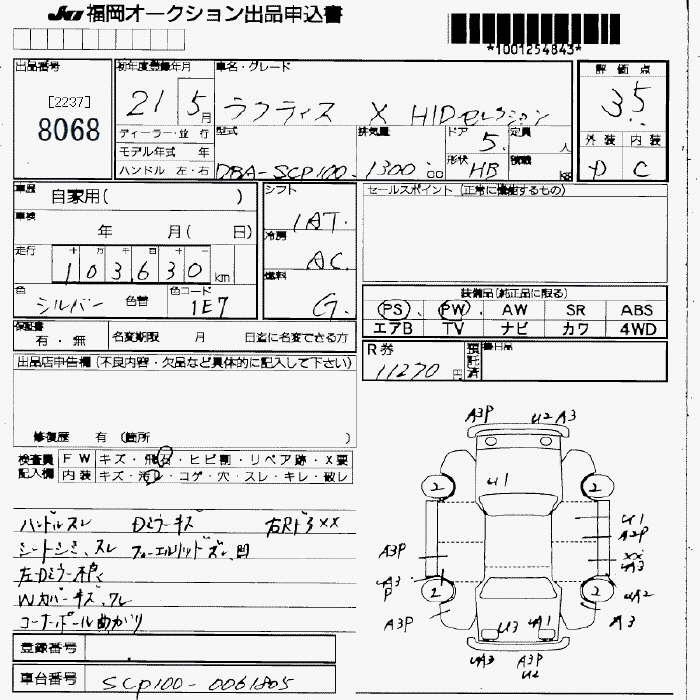 JU 福岡オークション出品申込書
*1001254843*
出品番号
[2237]
8068
初年度登録年月
21 5月
ディーラー・並行
モデル年式 年
ハンドル 左・右
車名・グレード
ラフティス X HIDセレクション
型式
DBA-SCP100-
排気量
1300 cc
ドア
5.
定員
人
形状
HB
積載
kg
評価点
3.5
外装 内装
D C
車歴
自家用( )
車検
年 月( 日)
走行
十 万 千 百 十 一
103630 km
色
シルバー
色替
色コード
1E7
シフト
IAT.
冷房
AC.
燃料
G.
セールスポイント (正常に機能するもの)
装備品(純正品に限る)
PS、 PW、 AW SR ABS
エアB TV ナビ カワ 4WD
保証書
有・無
名変期限 月 日迄に名変できる方
R券
11270円
預託済
後日品
出品店申告欄 (不良内容・欠品など具体的に記入して下さい)
修復歴 有 (箇所 )
検査員記入欄
FW キズ・飛石・ヒビ割・リペア跡・X要
内装 キズ・汚レ・コゲ・穴・スレ・キレ・破レ
ハンドルスレ Dミラーキズ 右Rドア XX
シートシミ、スレ フューエルリッドズレ、凹
左-Dミラー不良
Wカバーキズ、ワレ
コーナーポール曲がり
登録番号
車台番号
SCP100-0061805
A3P U2 A3
U1
2 2
U1
A2P
A3P
XX
UA3
UA3
P
2 2
UA2
A3P
A3
U3 A1
UA3
A3P
U2
UA3